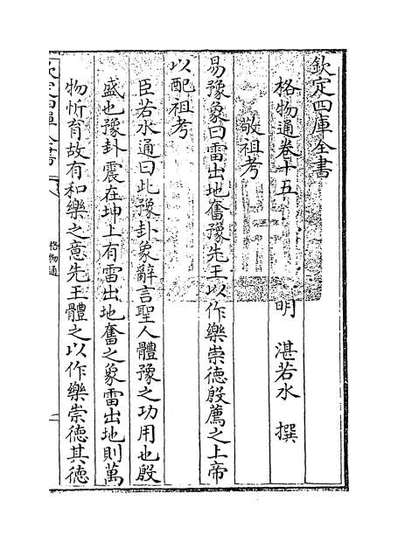 欽定四庫全書
格物通卷十五
明 湛若水 撰
敬祖考
易豫象曰雷出地奮豫先王以作樂崇德殷薦之上帝
以配祖考
臣若水通曰此豫卦象辭言聖人體豫之功用也殷
盛也豫卦震在坤上有雷出地奮之象雷出地則萬
物忻育故有和樂之意先王體之以作樂崇德其德
欽定四庫全書
格物通
一